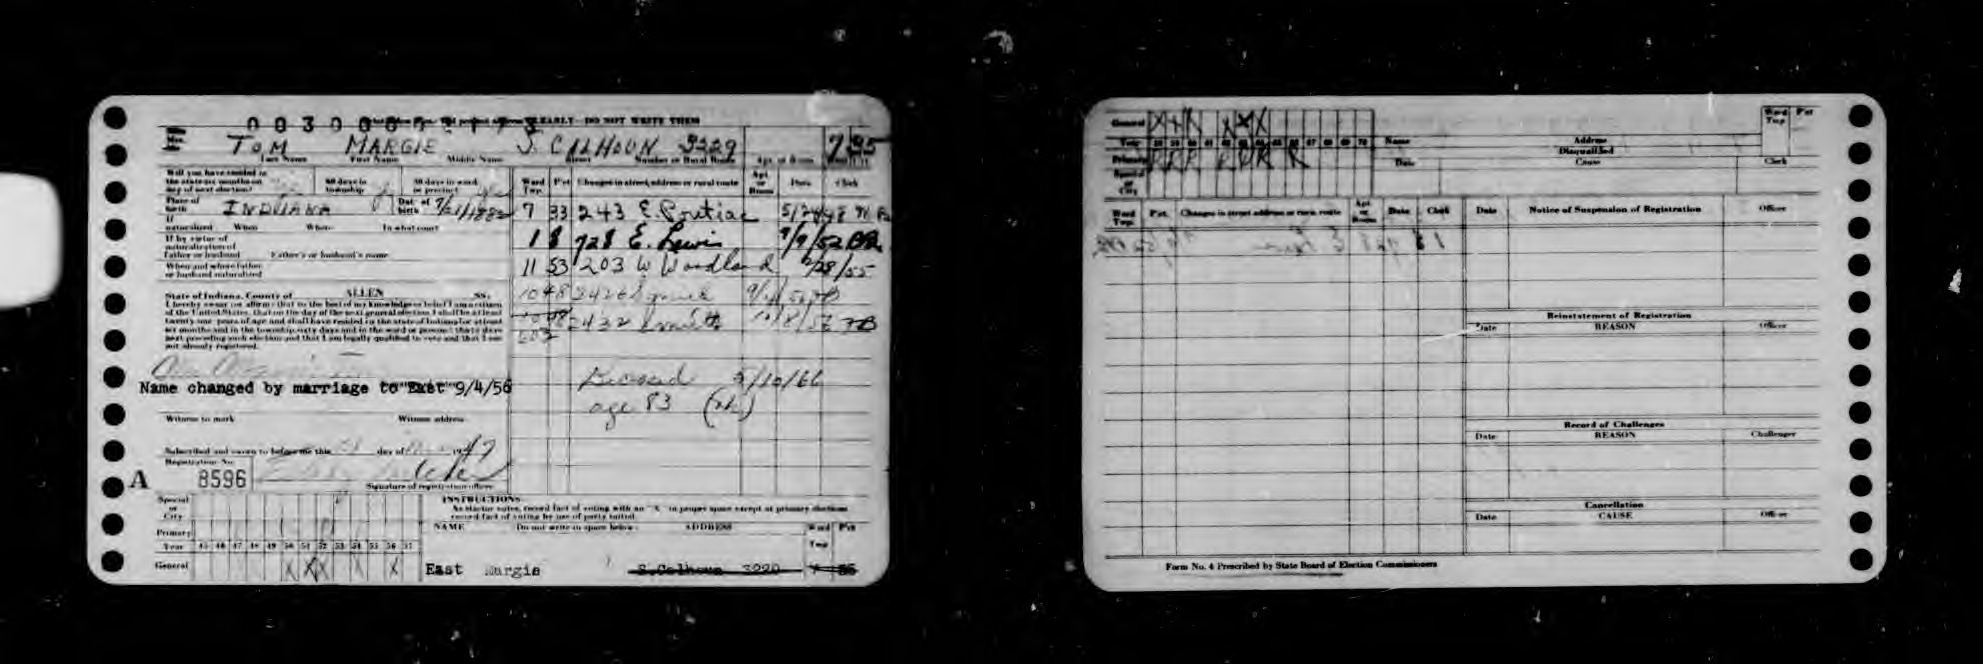 EARLY—DO NOT WRITE THEM
TOM MARGIE S. CALHOUN 3229 7 35
Last Name First Name Middle Name Street Number or Rural Route Apt. or Room
Will you have resided in the state six months on day of next election? 60 days in township 30 days in ward or precinct
Ward Twp. P'ct Changes in street, address or rural route Apt. or Room Date Clerk
Place of birth INDIANA Date of birth 7/21/1882
7 33 243 E. Pontiac 5/24/48
If naturalized When Where In what court
1 8 728 E. Lewis 9/9/52
If by virtue of naturalization of Father or husband Father's or husband's name
11 53 203 W Woodland 2/28/55
When and where father or husband naturalized
State of Indiana, County of ALLEN SS:
I hereby swear (or affirm) that to the best of my knowledge or belief I am a citizen
of the United States, that on the day of the next general election, I shall be at least
twenty-one years of age and shall have resided in the state of Indiana for at least
six months and in the township sixty days and in the ward or precinct thirty days
next preceding such election and that I am legally qualified to vote and that I am
not already registered.
1048 2426 9/4/56
1048 2432 10/8/56
Name changed by marriage to "East" 9/4/56
Deceased 5/10/66
age 83
Witness to mark Witness address
Subscribed and sworn to before me this day of 1947
Registration No.
A 8596
Signature of registration officer
Special or City
Primary
Year 45 46 47 48 49 50 51 52 53 54 55 56 57
General X X X X
INSTRUCTIONS
As elector votes, record fact of voting with an "X" in proper space except at primary elections
record fact of voting by use of party initial.
NAME Do not write in space below ADDRESS Ward Twp P'ct
East Margie S. Calhoun 3229 7 35
General X X X X X X
Year 58 59 60 61 62 63 64 65 66 67 68 69 70
Primary R R R R R R R
Special or City
Name Address Ward Twp P'ct
Disqualified
Date Cause Clerk
Ward Twp. P'ct. Changes in street address or rural route Apt. or Room Date Clerk
Date Notice of Suspension of Registration Officer
Reinstatement of Registration
Date REASON Officer
Record of Challenges
Date REASON Challenger
Cancellation
Date CAUSE Officer
Form No. 4 Prescribed by State Board of Election Commissioners